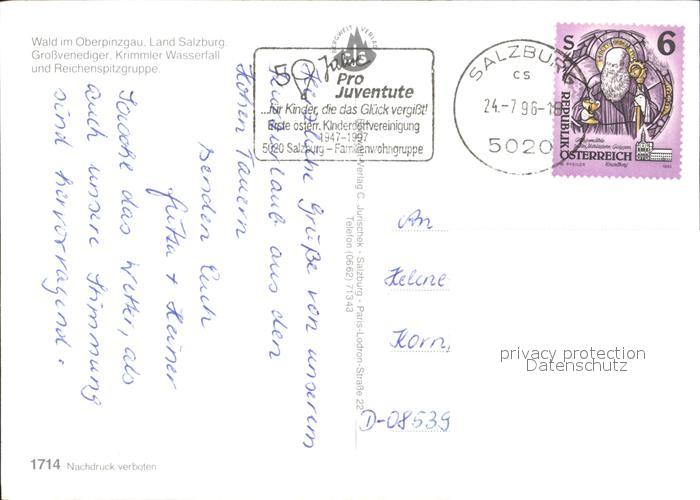 Wald im Oberpinzgau, Land Salzburg.
Großvenediger, Krimmler Wasserfall
und Reichenspitzgruppe.
BERGWELT VERLAG
50 Jahre
Pro
Juventute
...für Kinder, die das Glück vergißt!
Erste österr. Kinderdorfvereinigung
1947–1997
5020 Salzburg – Familienwohngruppe
SALZBURG
CS
24.-7 96-18
5020
S 6
REPUBLIK
ÖSTERREICH
Herzliche Grüße von unserem
aus den
Hohen Tauern
senden Euch
+ Heiner
Sowohl das Wetter, als
auch unsere Stimmung
sind hervorragend.
Verlag C. Jurischek - Salzburg - Paris-Lodron-Straße 22
Telefon (0662) 71343
An
Helene
Korn
D-08539
privacy protection
Datenschutz
1714 Nachdruck verboten